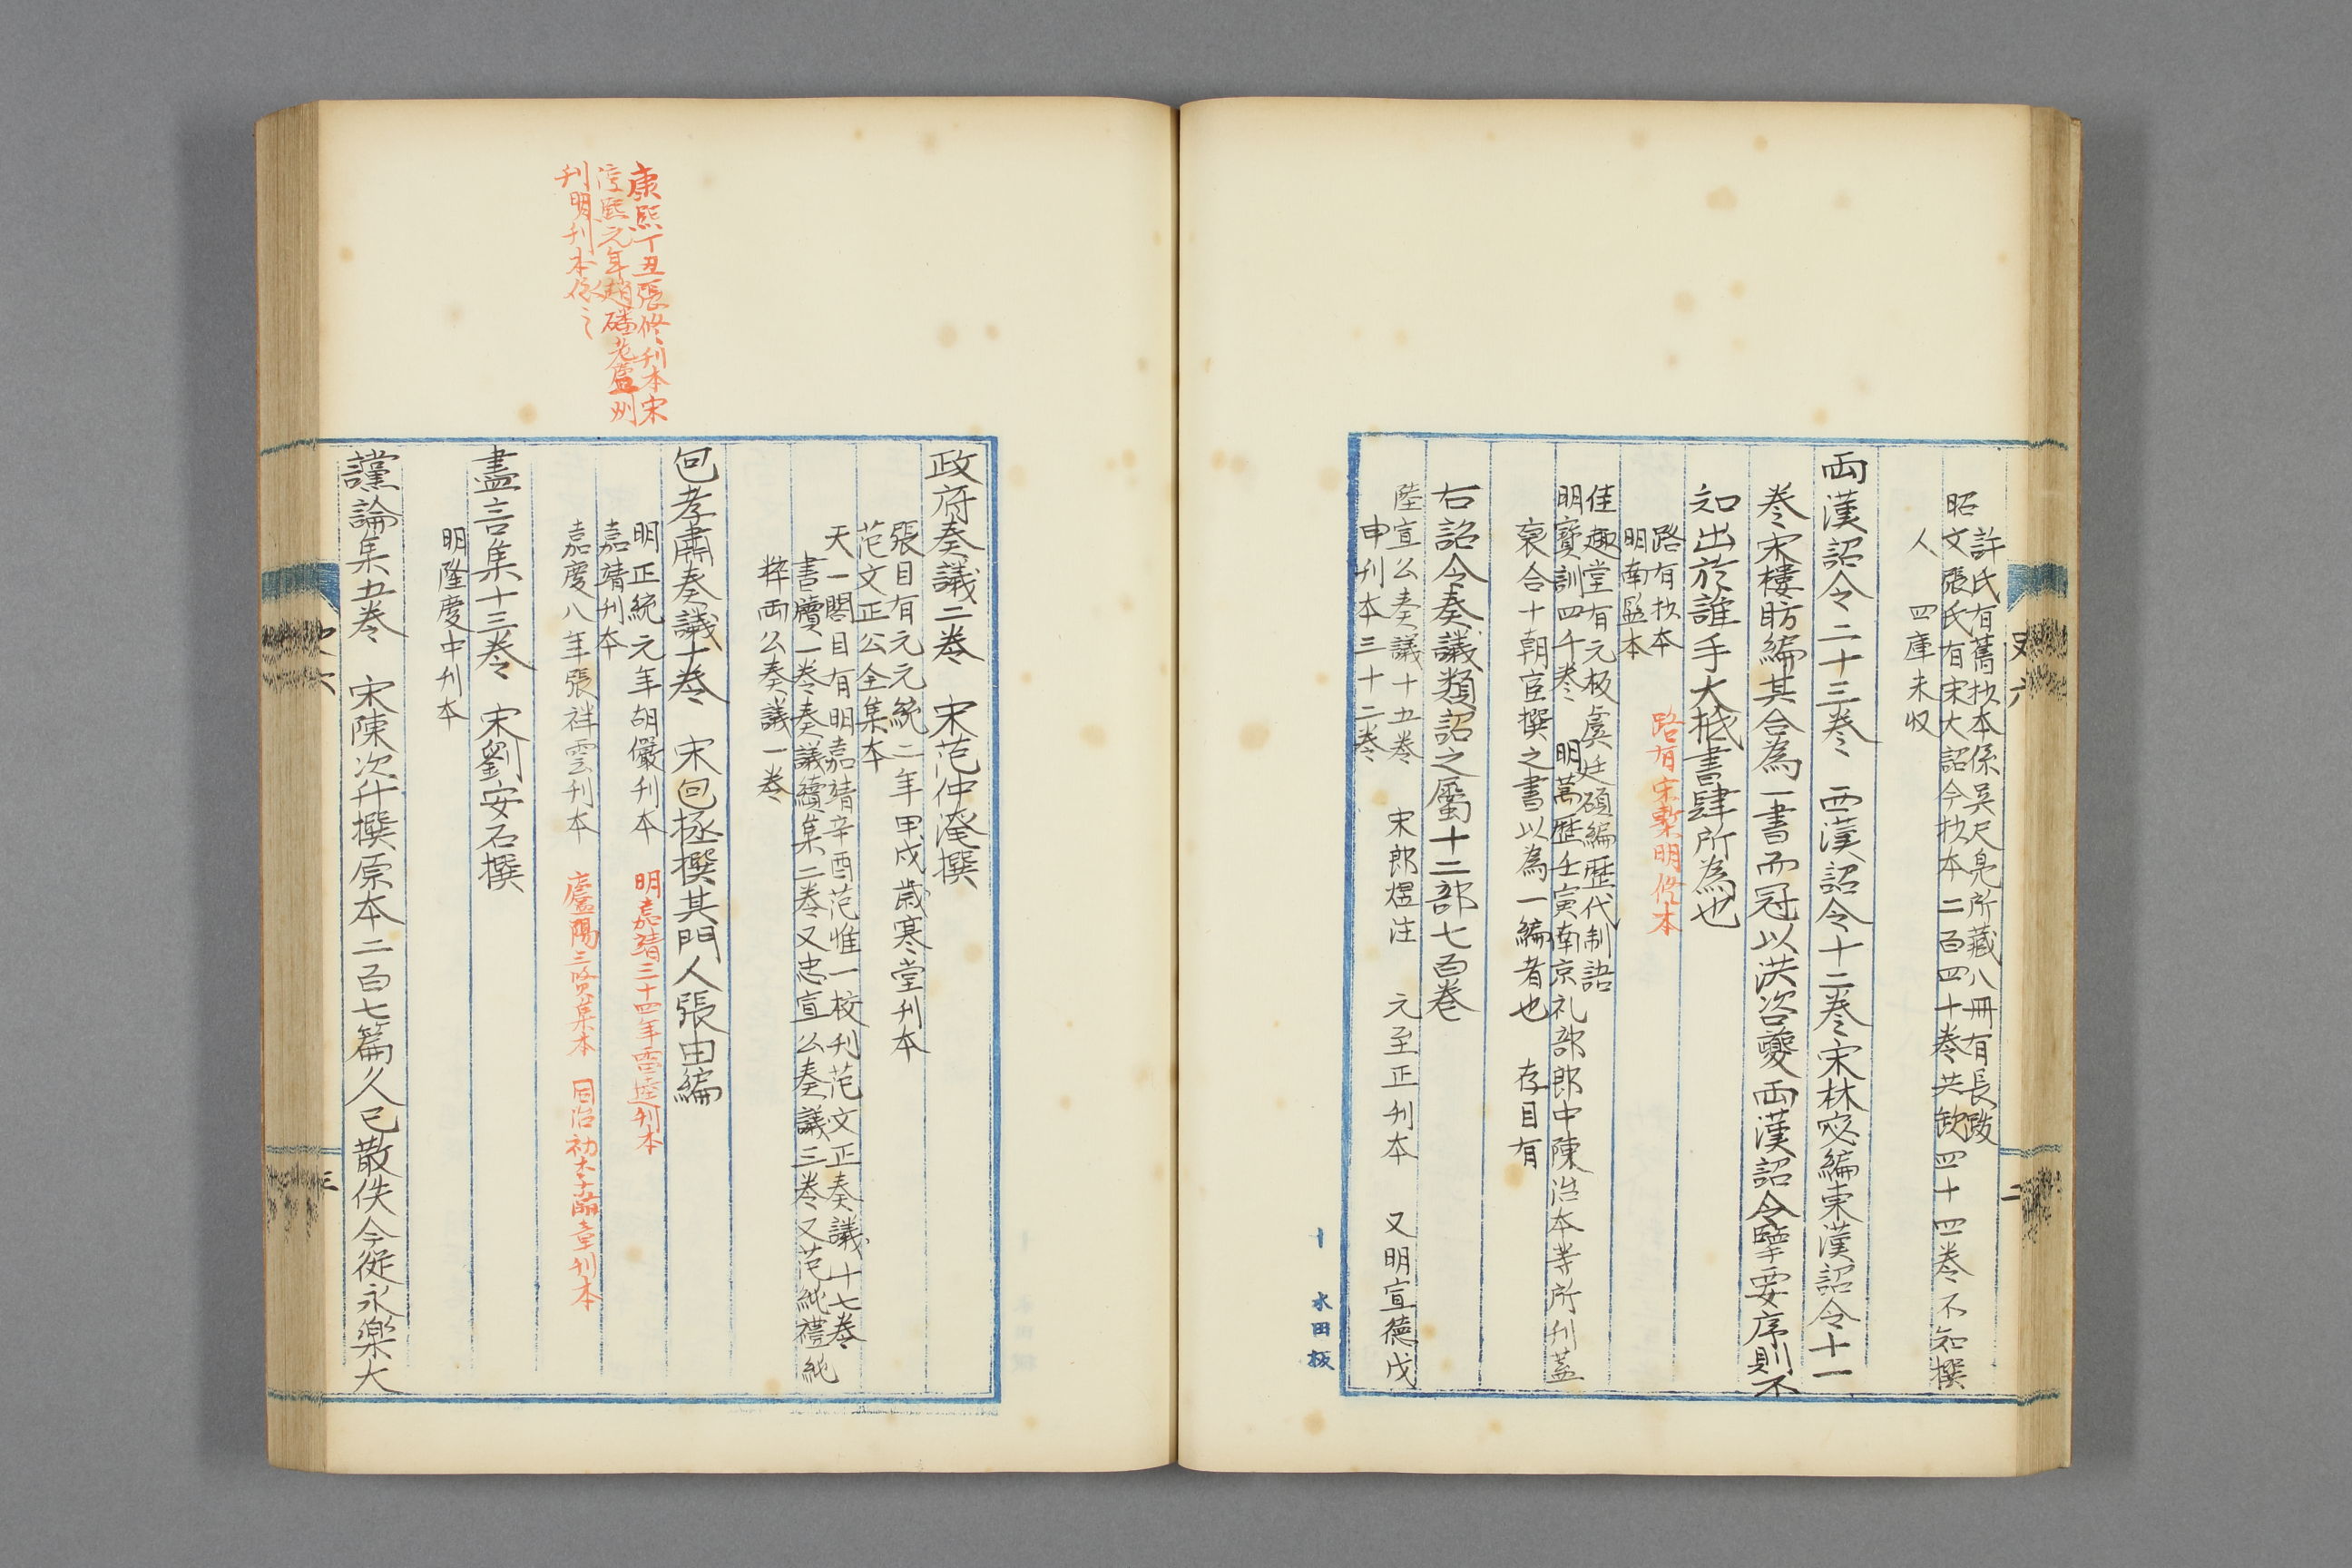 許氏有舊抄本係吳尺鳧所藏八冊有長跋
昭文張氏有宋大詔令抄本二百四十卷共缺四十四卷不知撰
人 四庫未收
兩漢詔令二十三卷 西漢詔令十二卷宋林虙編東漢詔令十一
卷宋樓昉編其合為一書而冠以洪咨夔兩漢詔令擥要序則不
知出於誰手大抵書肆所為也
路有抄本 路有宋槧明修本
明南監本
佳趣堂有元板虞廷碩編歷代制語
明寶訓四千卷 明萬歷壬寅南京礼部郎中陳治本等所刊蓋
裒合十朝官撰之書以為一編者也 存目有
右詔令奏議類詔之屬十二部七百卷
陸宣公奏議十五卷 宋郎煜注 元至正刊本 又明宣德戊
申刊本三十二卷
史六
二
水田板
政府奏議二卷 宋范仲淹撰
張目有元元統二年甲戌歲寒堂刊本
范文正公全集本
天一閣目有明嘉靖辛酉范惟一校刊范文正奏議十七卷
書牘一卷奏議續集二卷又忠宣公奏議三卷又范純禮純
粹兩公奏議一卷
包孝肅奏議十卷 宋包拯撰其門人張田編
明正統元年胡儼刊本 明嘉靖三十四年雷逵刊本
嘉靖刊本
嘉慶八年張祥雲刊本 廬陽三賢集本 同治初李瀚章刊本
康熙丁丑張修刊本宋
淳熙元年趙磻老廬州
刊明刊本依之
盡言集十三卷 宋劉安石撰
明隆慶中刊本
讜論集五卷 宋陳次升撰原本二百七篇久已散佚今從永樂大
三